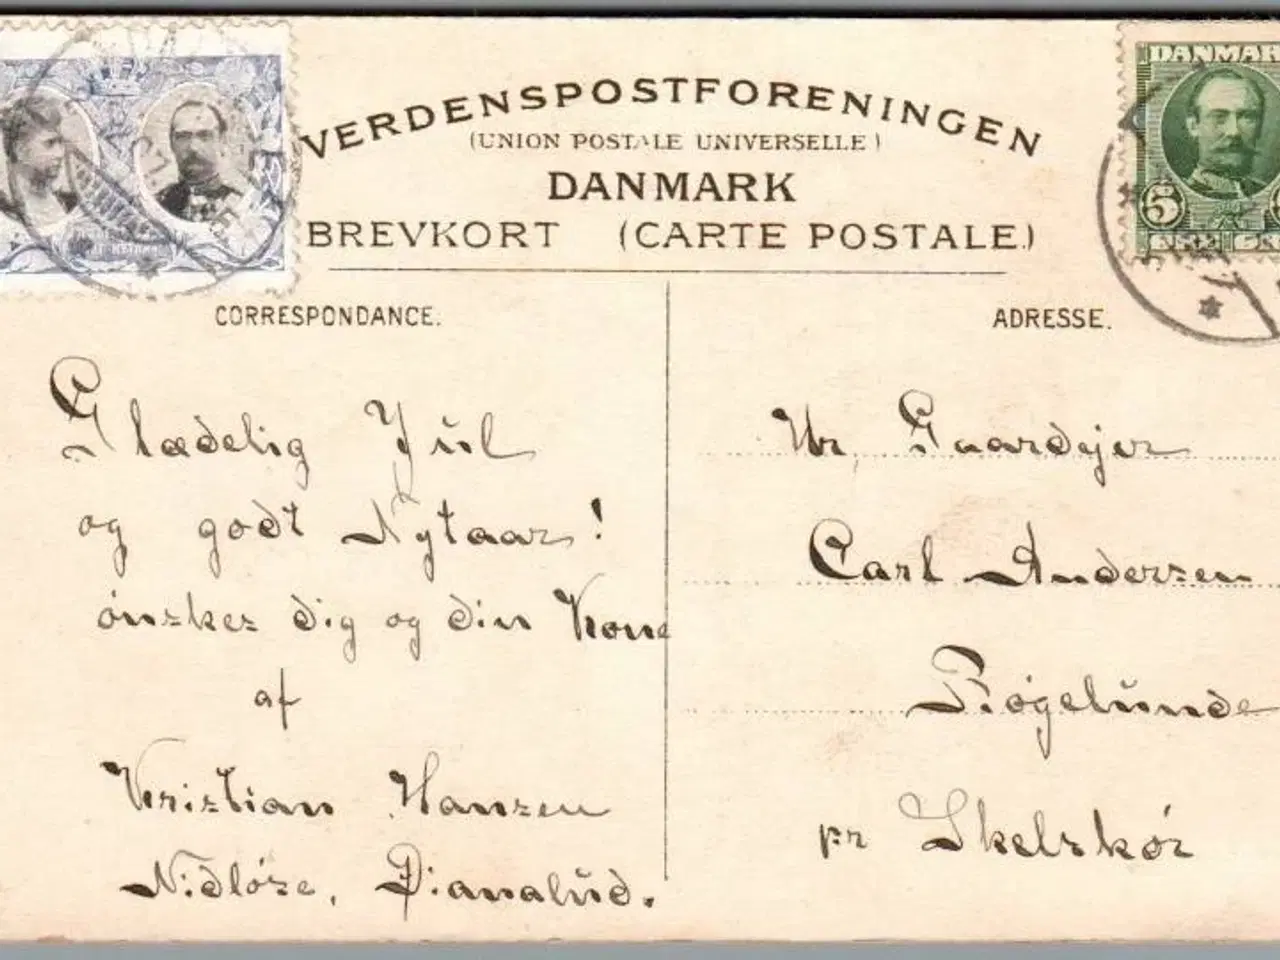 VERDENSPOSTFORENINGEN
(UNION POSTALE UNIVERSELLE)
DANMARK
BREVKORT (CARTE POSTALE.)
DANMARK
5
ØRE
CORRESPONDANCE.
ADRESSE.
Glædelig Jul
og godt Nytaar!
ønsker dig og din Kone
af
Kristian Hansen
Nidløse, Dianalund.
Hr. Gaardejer
Carl Andersen
Bøgelunde
pr Skelskør